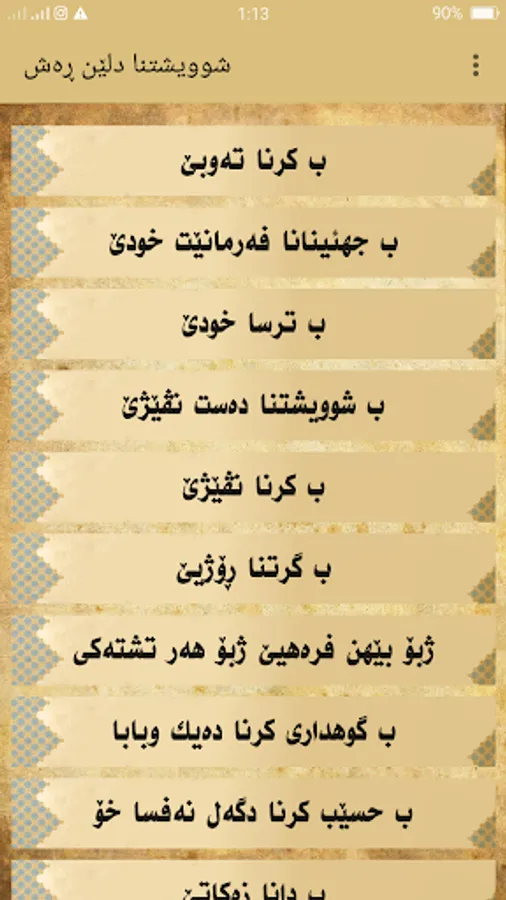 1:13
90%
شوویشتنا دلێن ڕەش
ب کرنا تەوبێ
ب جهئینانا فەرمانێت خودێ
ب ترسا خودێ
ب شوویشتنا دەست نڤێژێ
ب کرنا نڤێژێ
ب گرتنا ڕۆژیێ
ژبۆ بێهن فرەهیێ ژبۆ هەر تشتەکی
ب گوهداری کرنا دەیك وبابا
ب حسێب کرنا دگەل نەفسا خۆ
ب دانا زەکاتێ